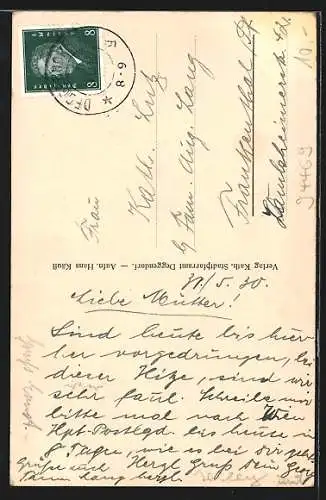 8 8
DEGG
8-9
Frau
Kath. Lutz
b/ Fam. Aug. Lang
Frankenthal/Pf
Lambsheimerstr
10.-
94469
Verlag Kath. Stadtpfarramt Deggendorf. — Aufn. Hans Käufl
31/5.30.
Liebe Mutter!
Sind heute bis hier-
her vorgedrungen, bei
dieser Hitze, sind wir
sehr faul. Schreibe mir
bitte mal nach Wien
Hpt-Postlgd. bis heute in
8 Tagen, wie es bei dir geht
Grüße und Herzl. Gruß Dein Georg